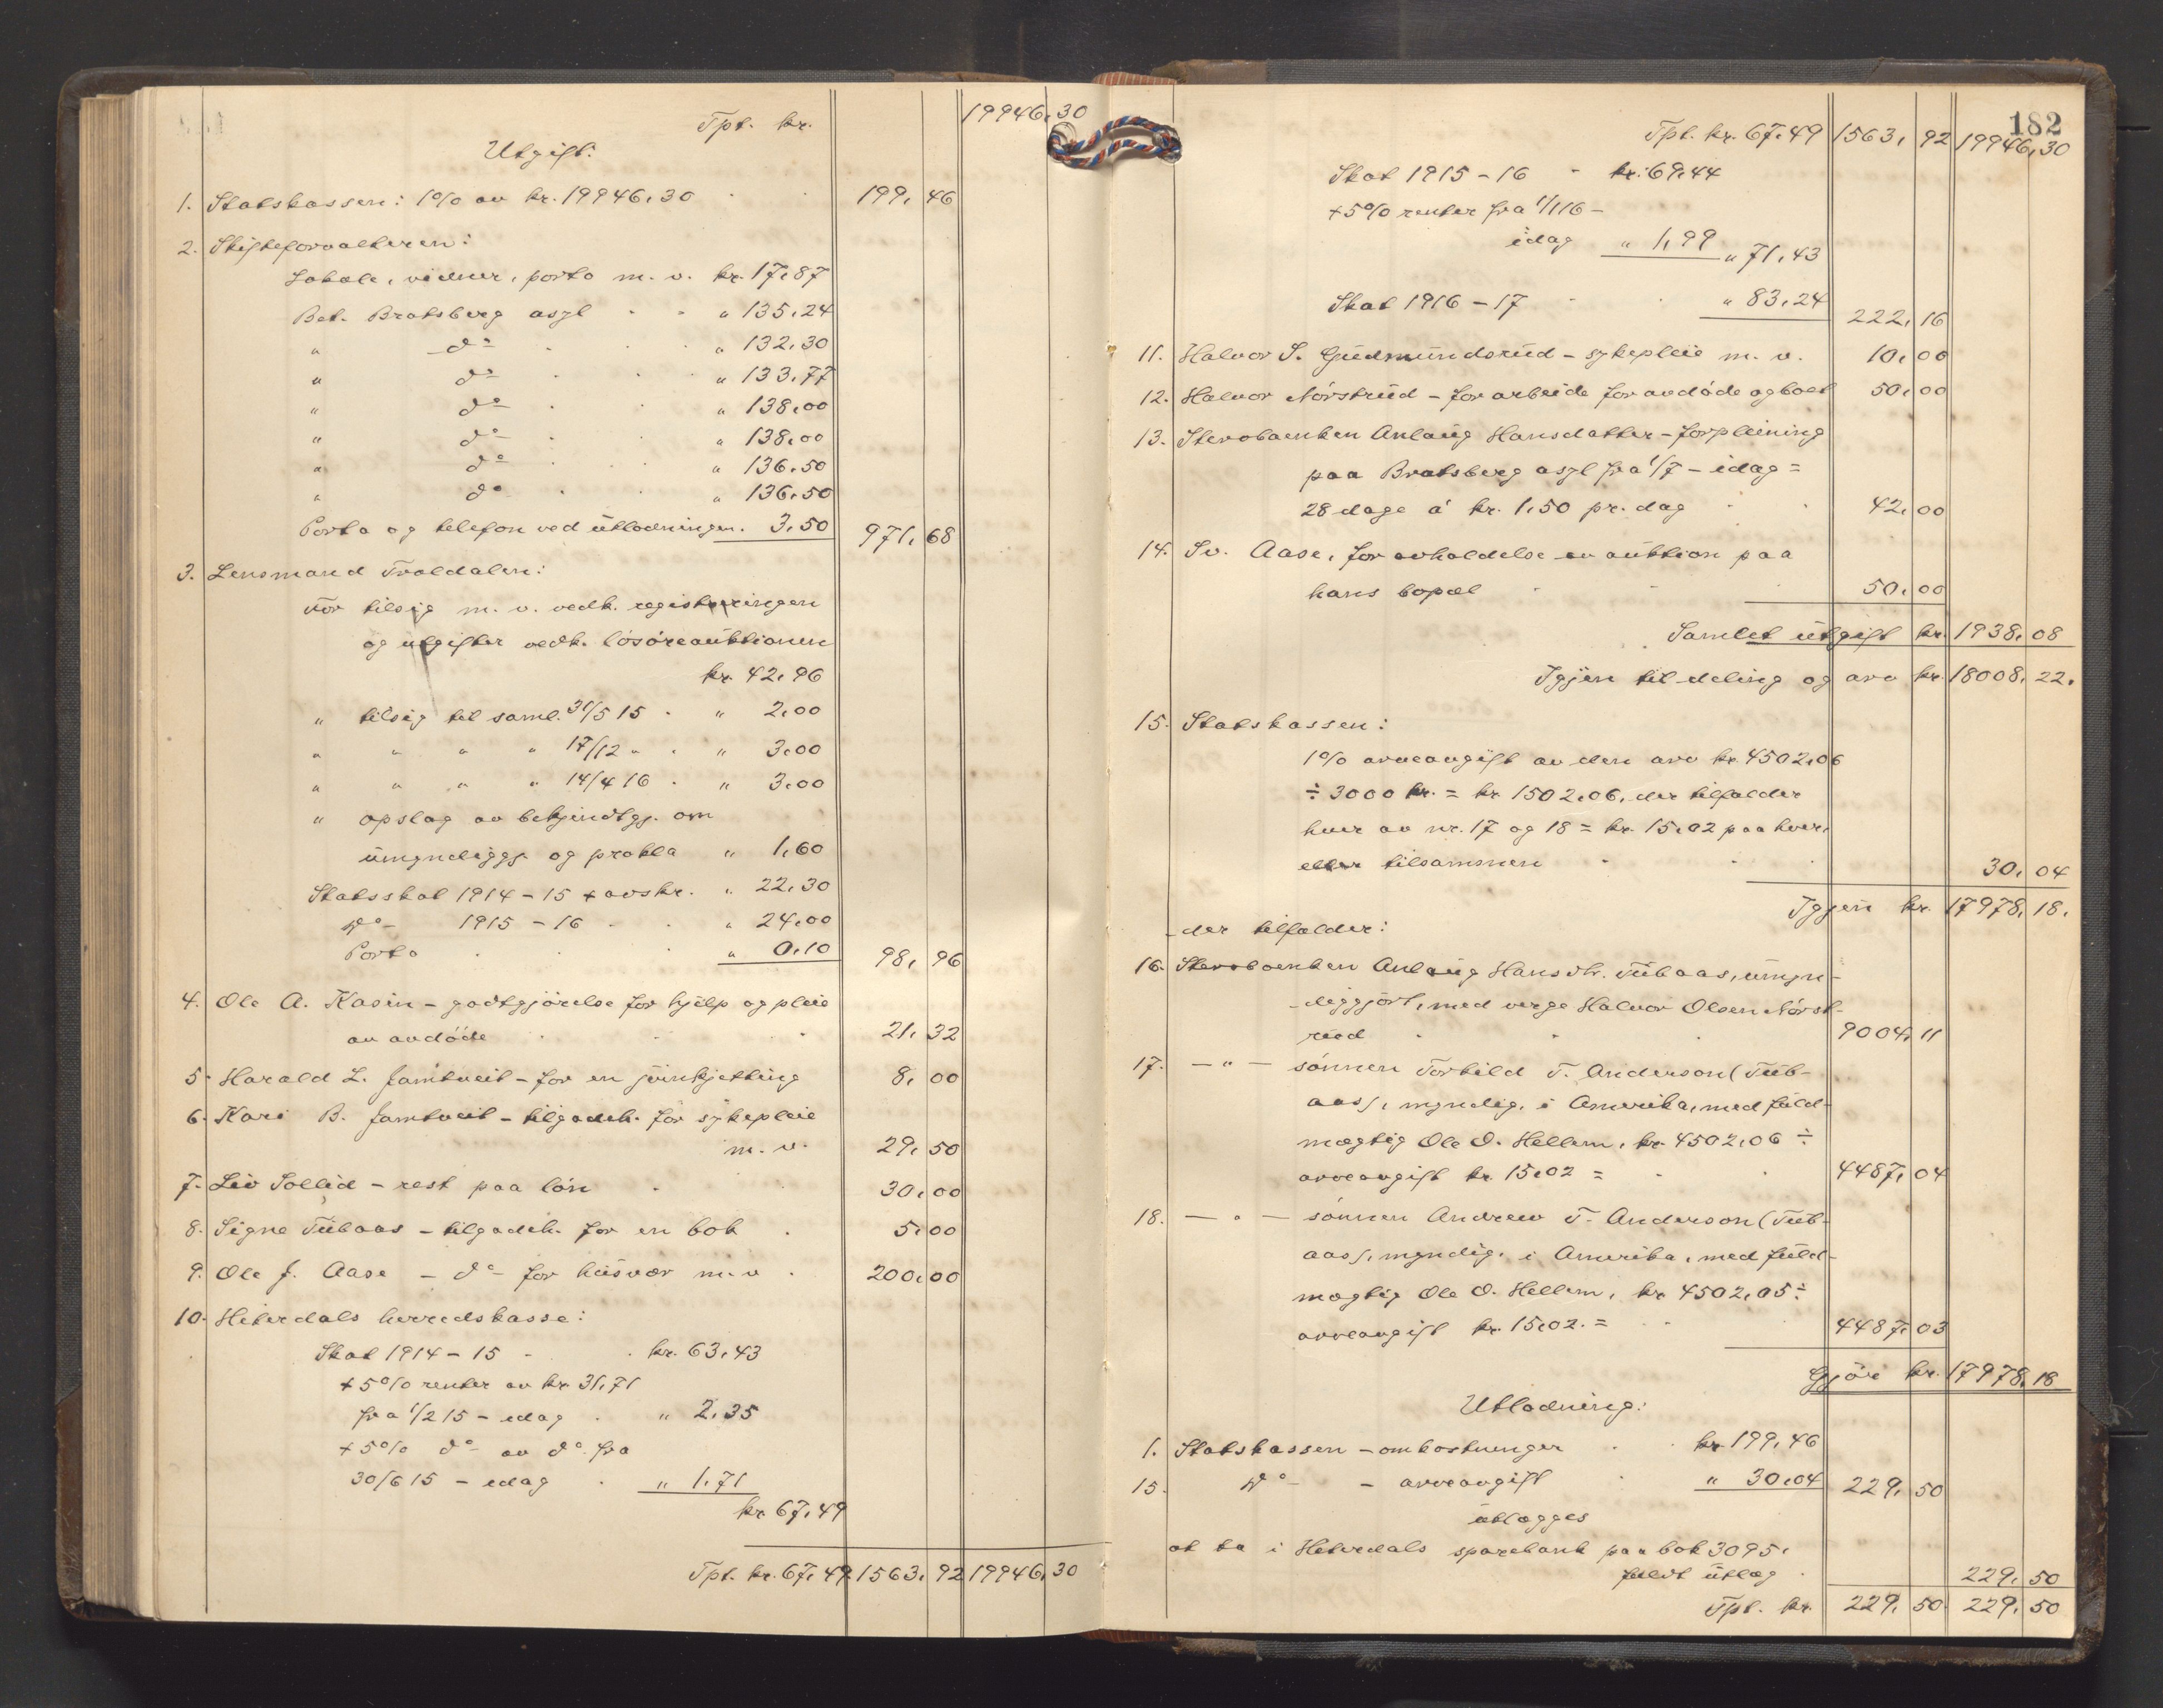 Tpt. kr. 19946,30
Utgift:
1. Statskassen: 1% av kr. 19946,30 199,46
2. Skifteforvalteren:
Lokale, vidner, porto m. v. kr. 17,87
Bet. Bratsberg asyl " 135,24
" do " 132,30
" do " 133,77
" do " 138,00
" do " 138,00
" do " 136,50
" do " 136,50
Porto og telefon ved utlodningen. 3,50 971,68
3. Lensmand Troldalen:
For tilsig m. v. vedk. registreringen
og utgifter vedk. løsøreauktionen
kr. 42,96
" tilsig til saml. 31/5 15 " 2,00
" " " " 17/12 " " 3,00
" " " " 14/4 16 " 3,00
" opslag av bekjendtgj. om
umyndiggj. og prokla " 1,60
Statsskat 1914-15 + avskr. " 22,30
do 1915-16 " 24,00
Porto " 0,10 98,96
4. Ole A. Kasin - godtgjörelse for hjelp og pleie
av avdöde 21,32
5. Harald L. Jamtveit - for en jernkjetting 8,00
6. Kari B. Jamtveit - tilgodeh. for sykepleie
m. v. 29,50
7. Liv Sollid - rest paa lön 30,00
8. Signe Tubaas - tilgodeh. for en bok 5,00
9. Ole J. Aase - do for husvær m. v. 200,00
10. Hiterdals herredskasse:
Skat 1914-15 kr. 63,43
+ 5% renter av kr. 31,71
fra 1/2 15 - idag " 2,35
+ 5% do av do fra
30/6 15 - idag " 1,71
kr. 67,49
Tpt. kr. 67,49 1563,92 19946,30
182
Tpt. kr. 67,49 1563,92 19946,30
Skat 1915-16 - kr. 69,44
+ 5% renter fra 1/1 16 -
idag " 1,99 " 71,43
Skat 1916-17 " 83,24 222,16
11. Halvor S. Gudmundsrud - sykepleie m. v. 10,00
12. Halvor Nörstrud - for arbeide for avdöde og boet 50,00
13. Stervboenken Anlaug Hansdatter - forpleining
paa Bratsberg asyl fra 1/7 - idag =
28 dage á kr. 1,50 pr. dag 42,00
14. Sv. Aase, for avholdelse av auktion paa
hans bopæl 50,00
Samlet utgift kr. 1938,08
Igjen til deling og arv kr. 18008,22.
15. Statskassen:
1% arveavgift av den arv kr. 4502,06
÷ 3000 kr. = kr. 1502,06, der tilfalder
hver av nr. 17 og 18 = kr. 15,02 paa hver,
eller tilsammen 30,04
Igjen kr. 17978,18.
der tilfalder:
16. Stervboenken Anlaug Hansdtr. Tubaas, umyn-
diggjört, med verge Halvor Olsen Nörst-
rud 9004,11
17. - " - sönnen Torkild T. Anderson (Tub-
aas), myndig, i Amerika, med fuld-
mægtig Ole O. Hellem, kr. 4502,06 ÷
arveavgift kr. 15,02 = 4487,04
18. - " - sönnen Andrew T. Anderson (Tub-
aas), myndig, i Amerika, med fuld-
mægtig Ole O. Hellem, kr. 4502,05 ÷
arveavgift kr. 15,02. = 4487,03
Gjör kr. 17978,18
Utlodning:
1. Statskassen - omkostninger kr. 199,46
15. do - arveavgift " 30,04 229,50
utlægges
at ta i Hiterdals sparebank paa bok 3095,
fuldt utlæg 229,50
Tpt. kr. 229,50 229,50